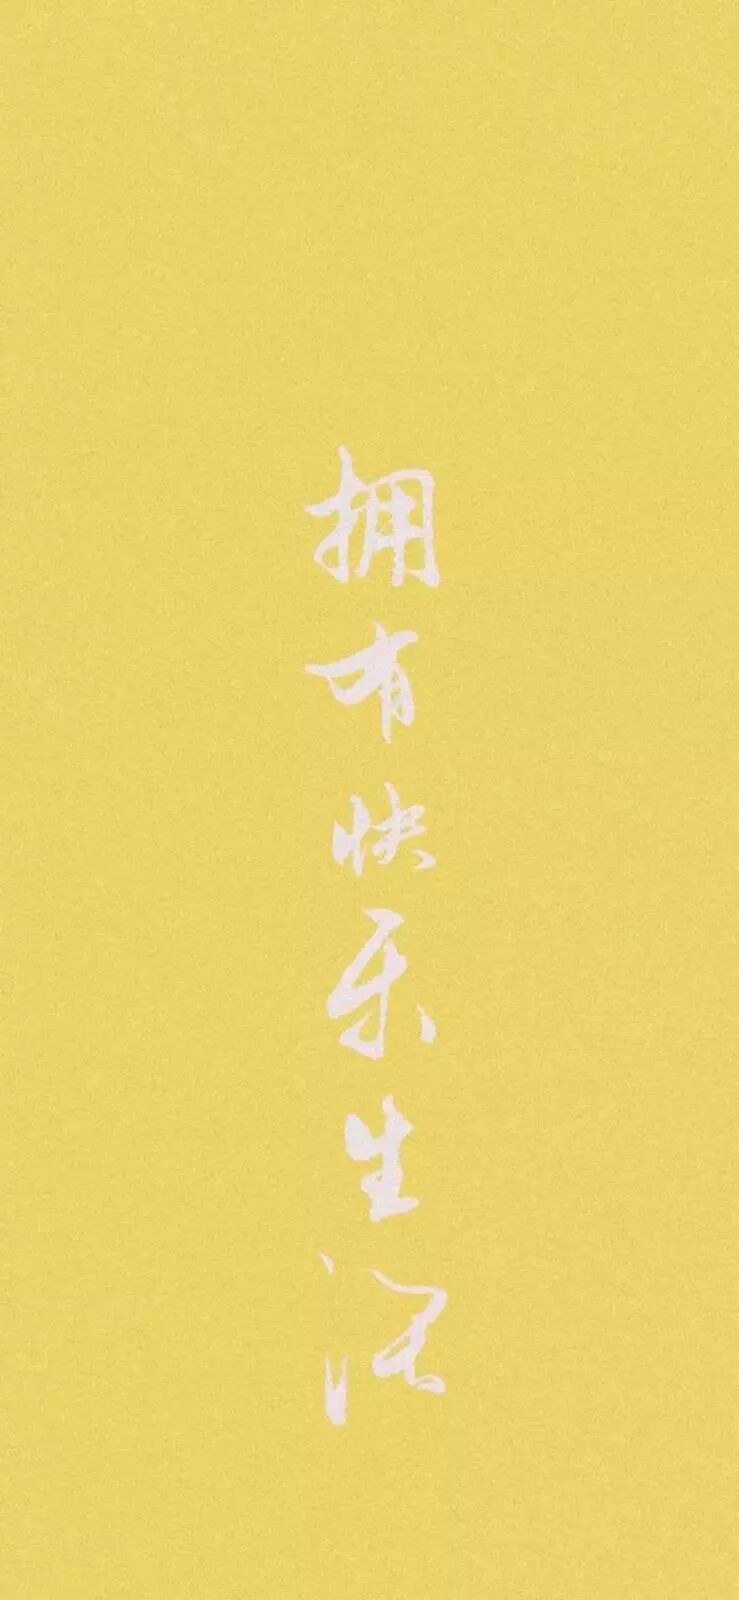 拥有快乐生活